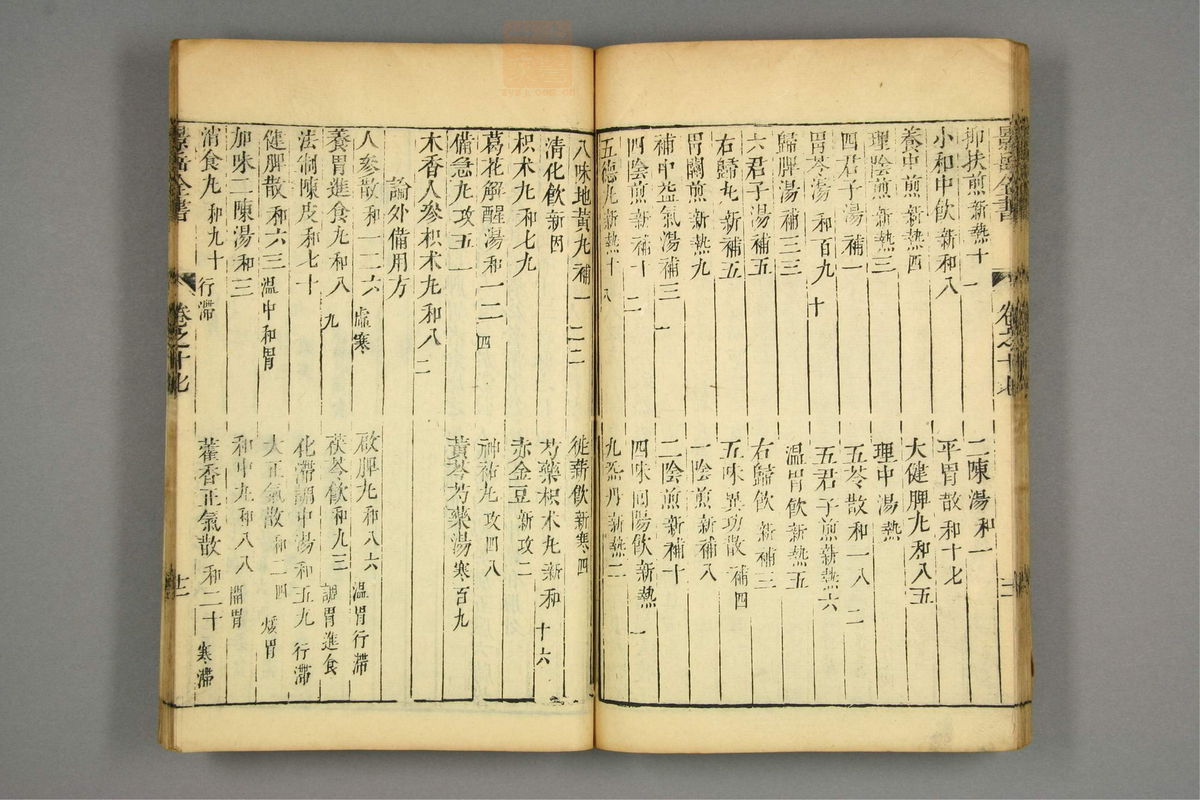 景岳全書
卷之十七
抑扶煎新熱十一
二陳湯和一
小和中飲新和八
平胃散和十七
養中煎新熱四
大健脾丸和八五
理陰煎新熱三
理中湯熱一
四君子湯補一
五苓散和一八二
胃苓湯和百九十
五君子煎新熱六
歸脾湯補三三
溫胃飲新熱五
六君子湯補五
右歸飲新補三
右歸丸新補五
五味異功散補四
胃關煎新熱九
一陰煎新補八
補中益氣湯補三一
二陰煎新補十
四陰煎新補十二
四味回陽飲新熱一
五德丸新熱十八
九炁丹新熱二
八味地黃丸補一二二
徙薪飲新寒四
清化飲新因
芍藥枳朮丸新和十六
枳朮丸和七九
赤金豆新攻二
葛花解醒湯和一二四
神祐丸攻四八
備急丸攻五一
黃芩芍藥湯寒百九
木香人參枳朮丸和八二
論外備用方
人參散和一二六 虛寒
啟脾丸和八六 溫胃行滯
養胃進食丸和八九
茯苓飲和九三 調胃進食
法制陳皮和七十
化滯調中湯和五九 行滯
健脾散和六三 溫中和胃
大正氣散和二四 煖胃
加味二陳湯和三
和中丸和八八 開胃
消食丸和九十 行滯
藿香正氣散和二十 寒滯
景岳全書
卷之十七